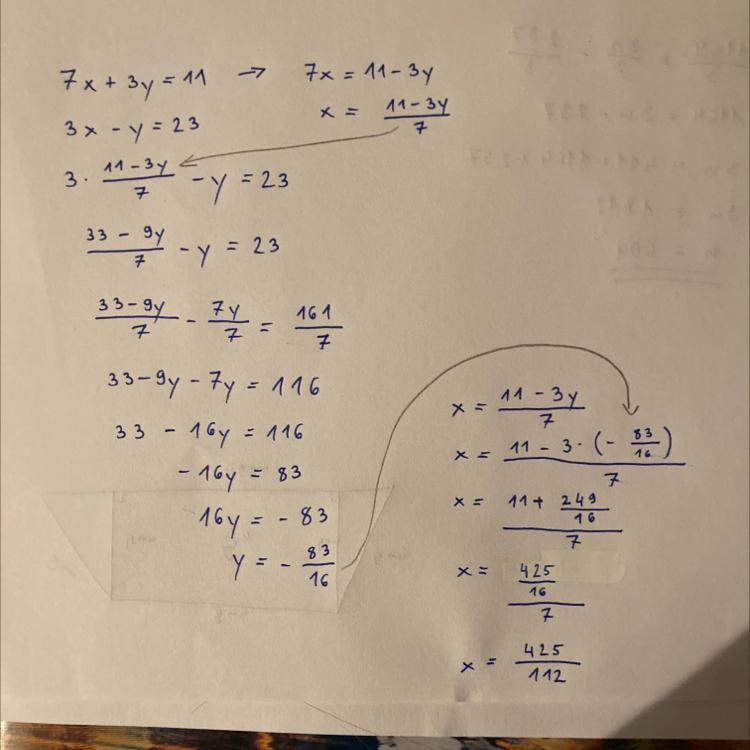 7x + 3y = 11 → 7x = 11 - 3y
3x - y = 23
x = (11 - 3y)/7
3 · (11 - 3y)/7 - y = 23
(33 - 9y)/7 - y = 23
(33 - 9y)/7 - 7y/7 = 161/7
33 - 9y - 7y = 116
33 - 16y = 116
-16y = 83
16y = -83
y = - 83/16
x = (11 - 3y)/7
x = (11 - 3 · (- 83/16))/7
x = (11 + 249/16)/7
x = (425/16)/7
x = 425/112